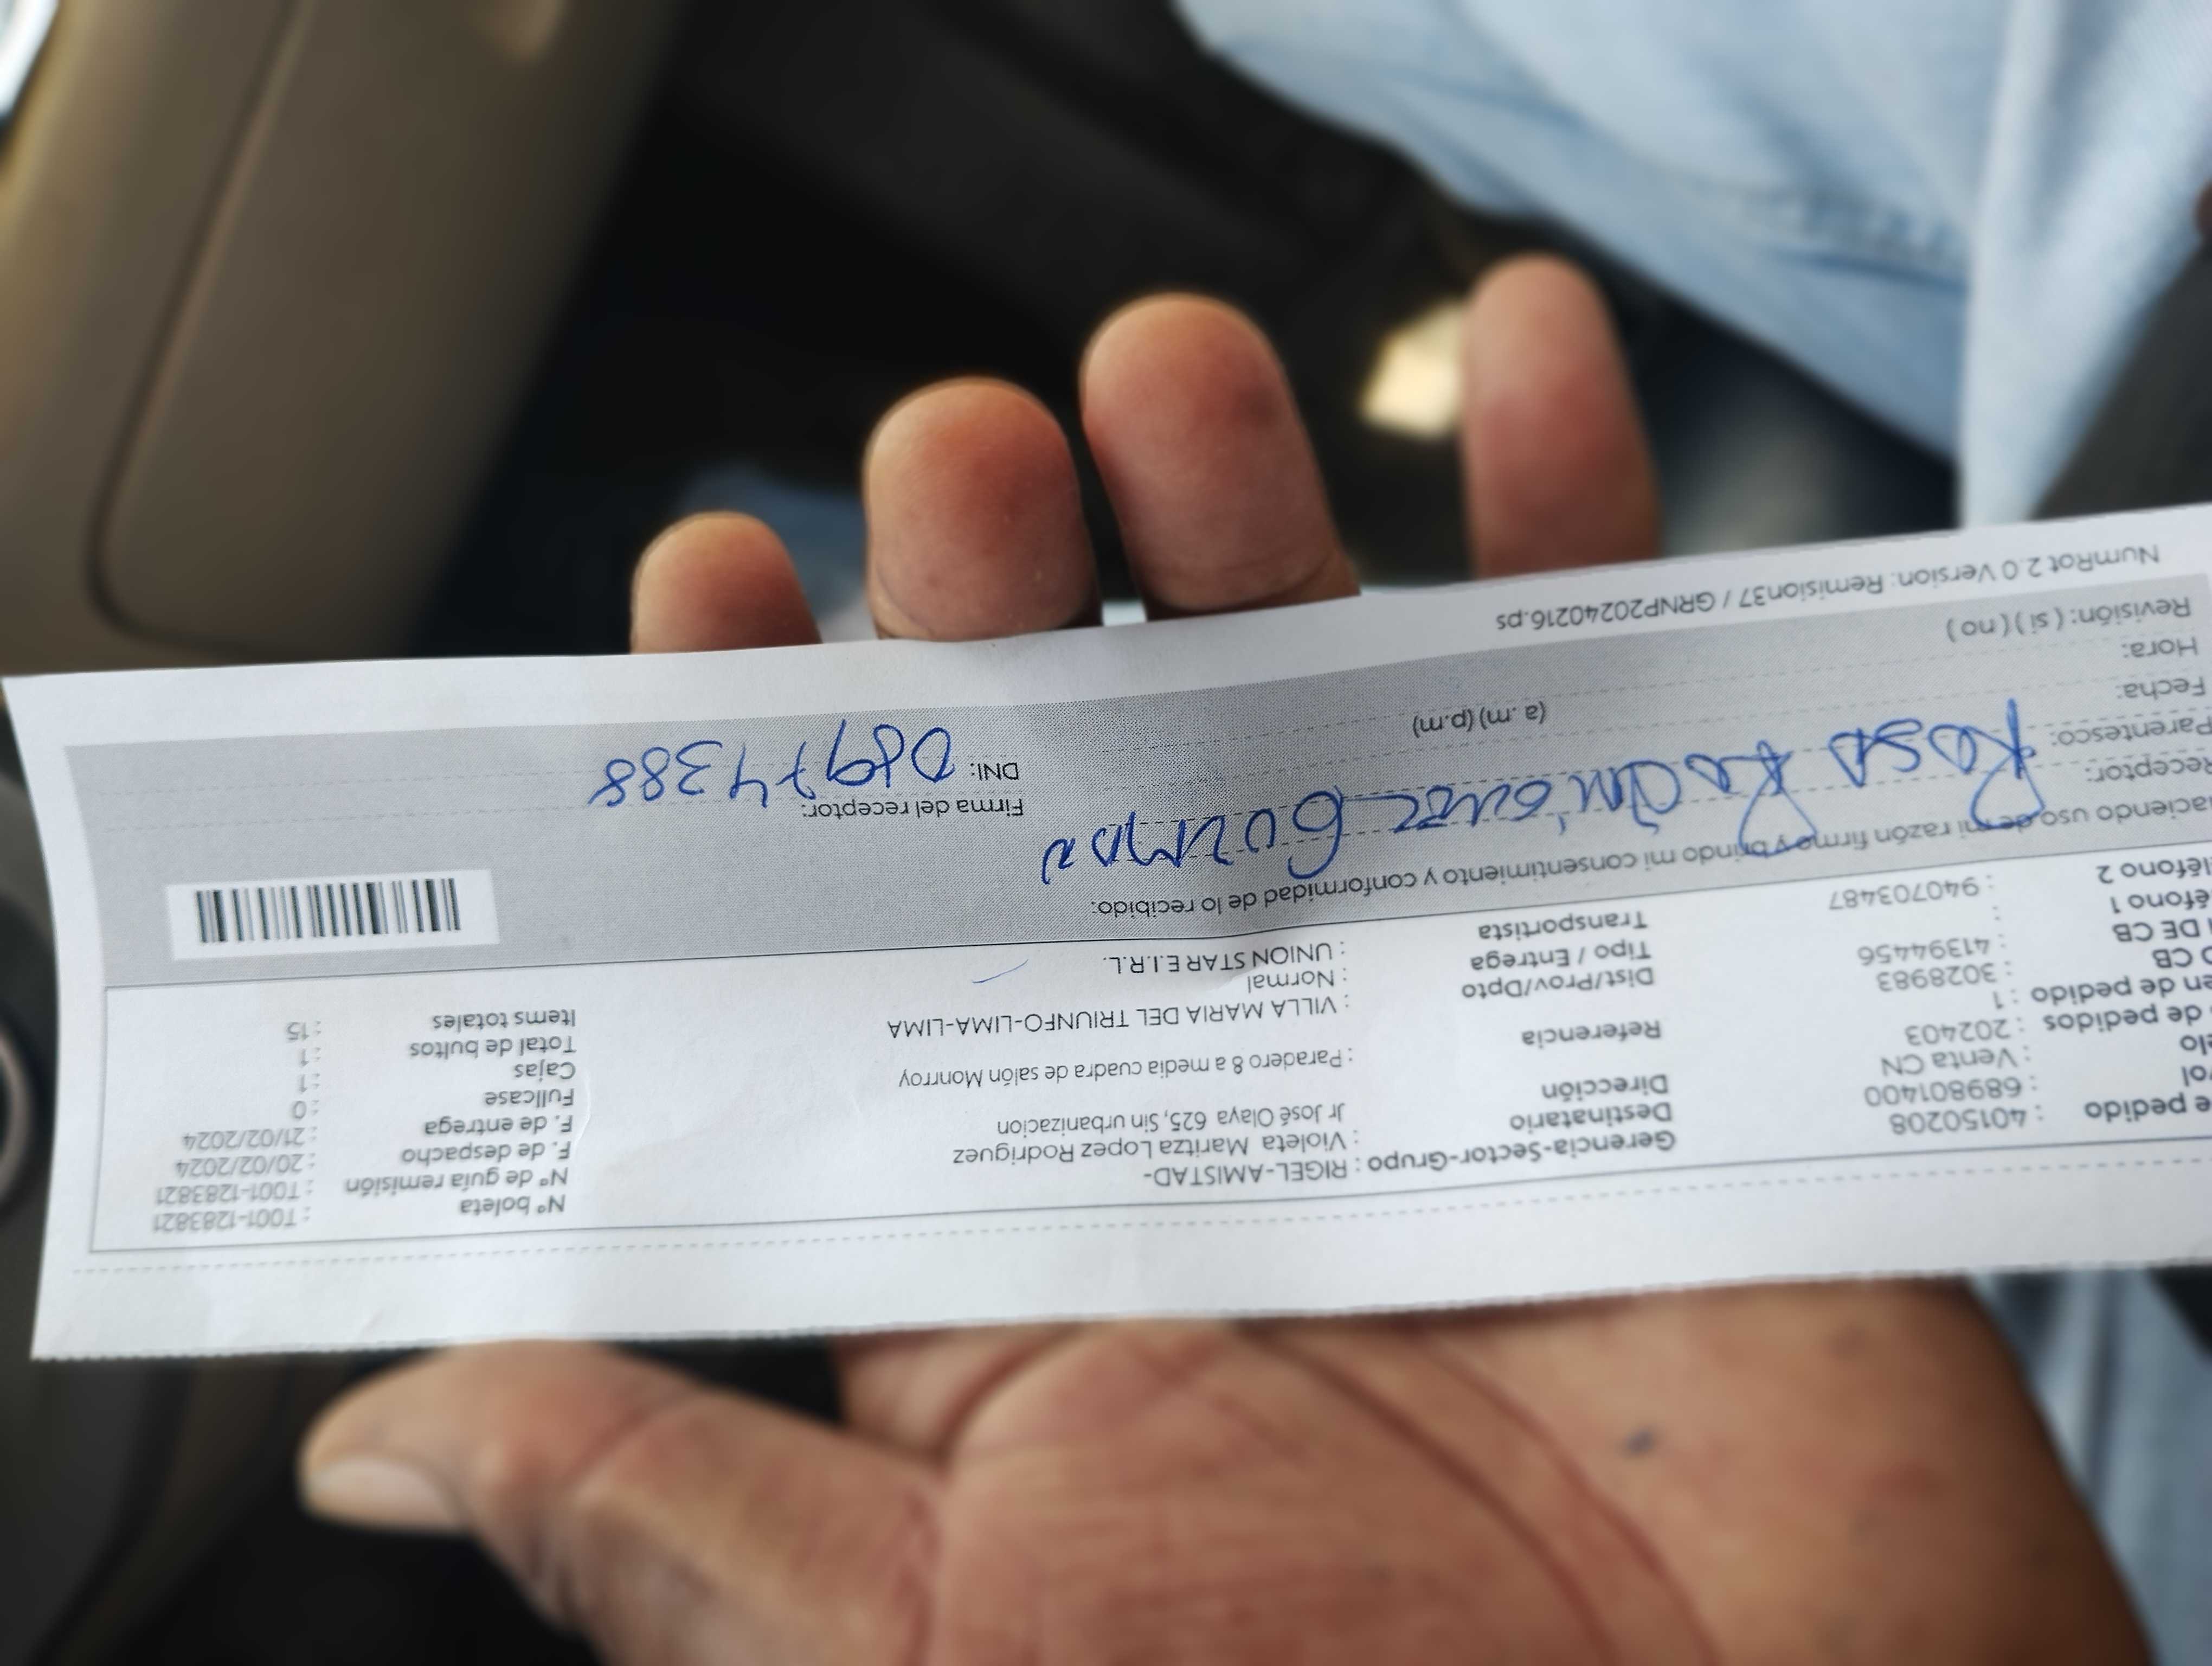 e pedido : 40150208
rol : 689801400
elo : Venta CN
de pedidos : 202403
en de pedido : 1
O CB : 3028983
DE CB : 41394456
léfono 1 :
léfono 2 : 940703487
Gerencia-Sector-Grupo : RIGEL-AMISTAD-
Destinatario : Violeta Maritza Lopez Rodriguez
Dirección Jr José Olaya 625, Sin urbanizacion
Referencia : Paradero 8 a media cuadra de salón Monrroy
Dist/Prov/Dpto : VILLA MARIA DEL TRIUNFO-LIMA-LIMA
Tipo / Entrega : Normal
Transportista : UNION STAR E.I.R.L.
Nº boleta : T001-1283821
Nº de guía remisión : T001-1283821
F. de despacho : 20/02/2024
F. de entrega : 21/02/2024
Fullcase : 0
Cajas : 1
Total de bultos : 1
Items totales : 15
aciendo uso de mi razón firmo y brindo mi consentimiento y conformidad de lo recibido:
Receptor: Rosa
Parentesco:
Fecha:
Hora: (a .m) (p.m)
Revisión: ( si ) ( no )
Firma del receptor:
DNI: 08974388
NumRot 2.0 Version: Remision37 / GRNP20240216.ps